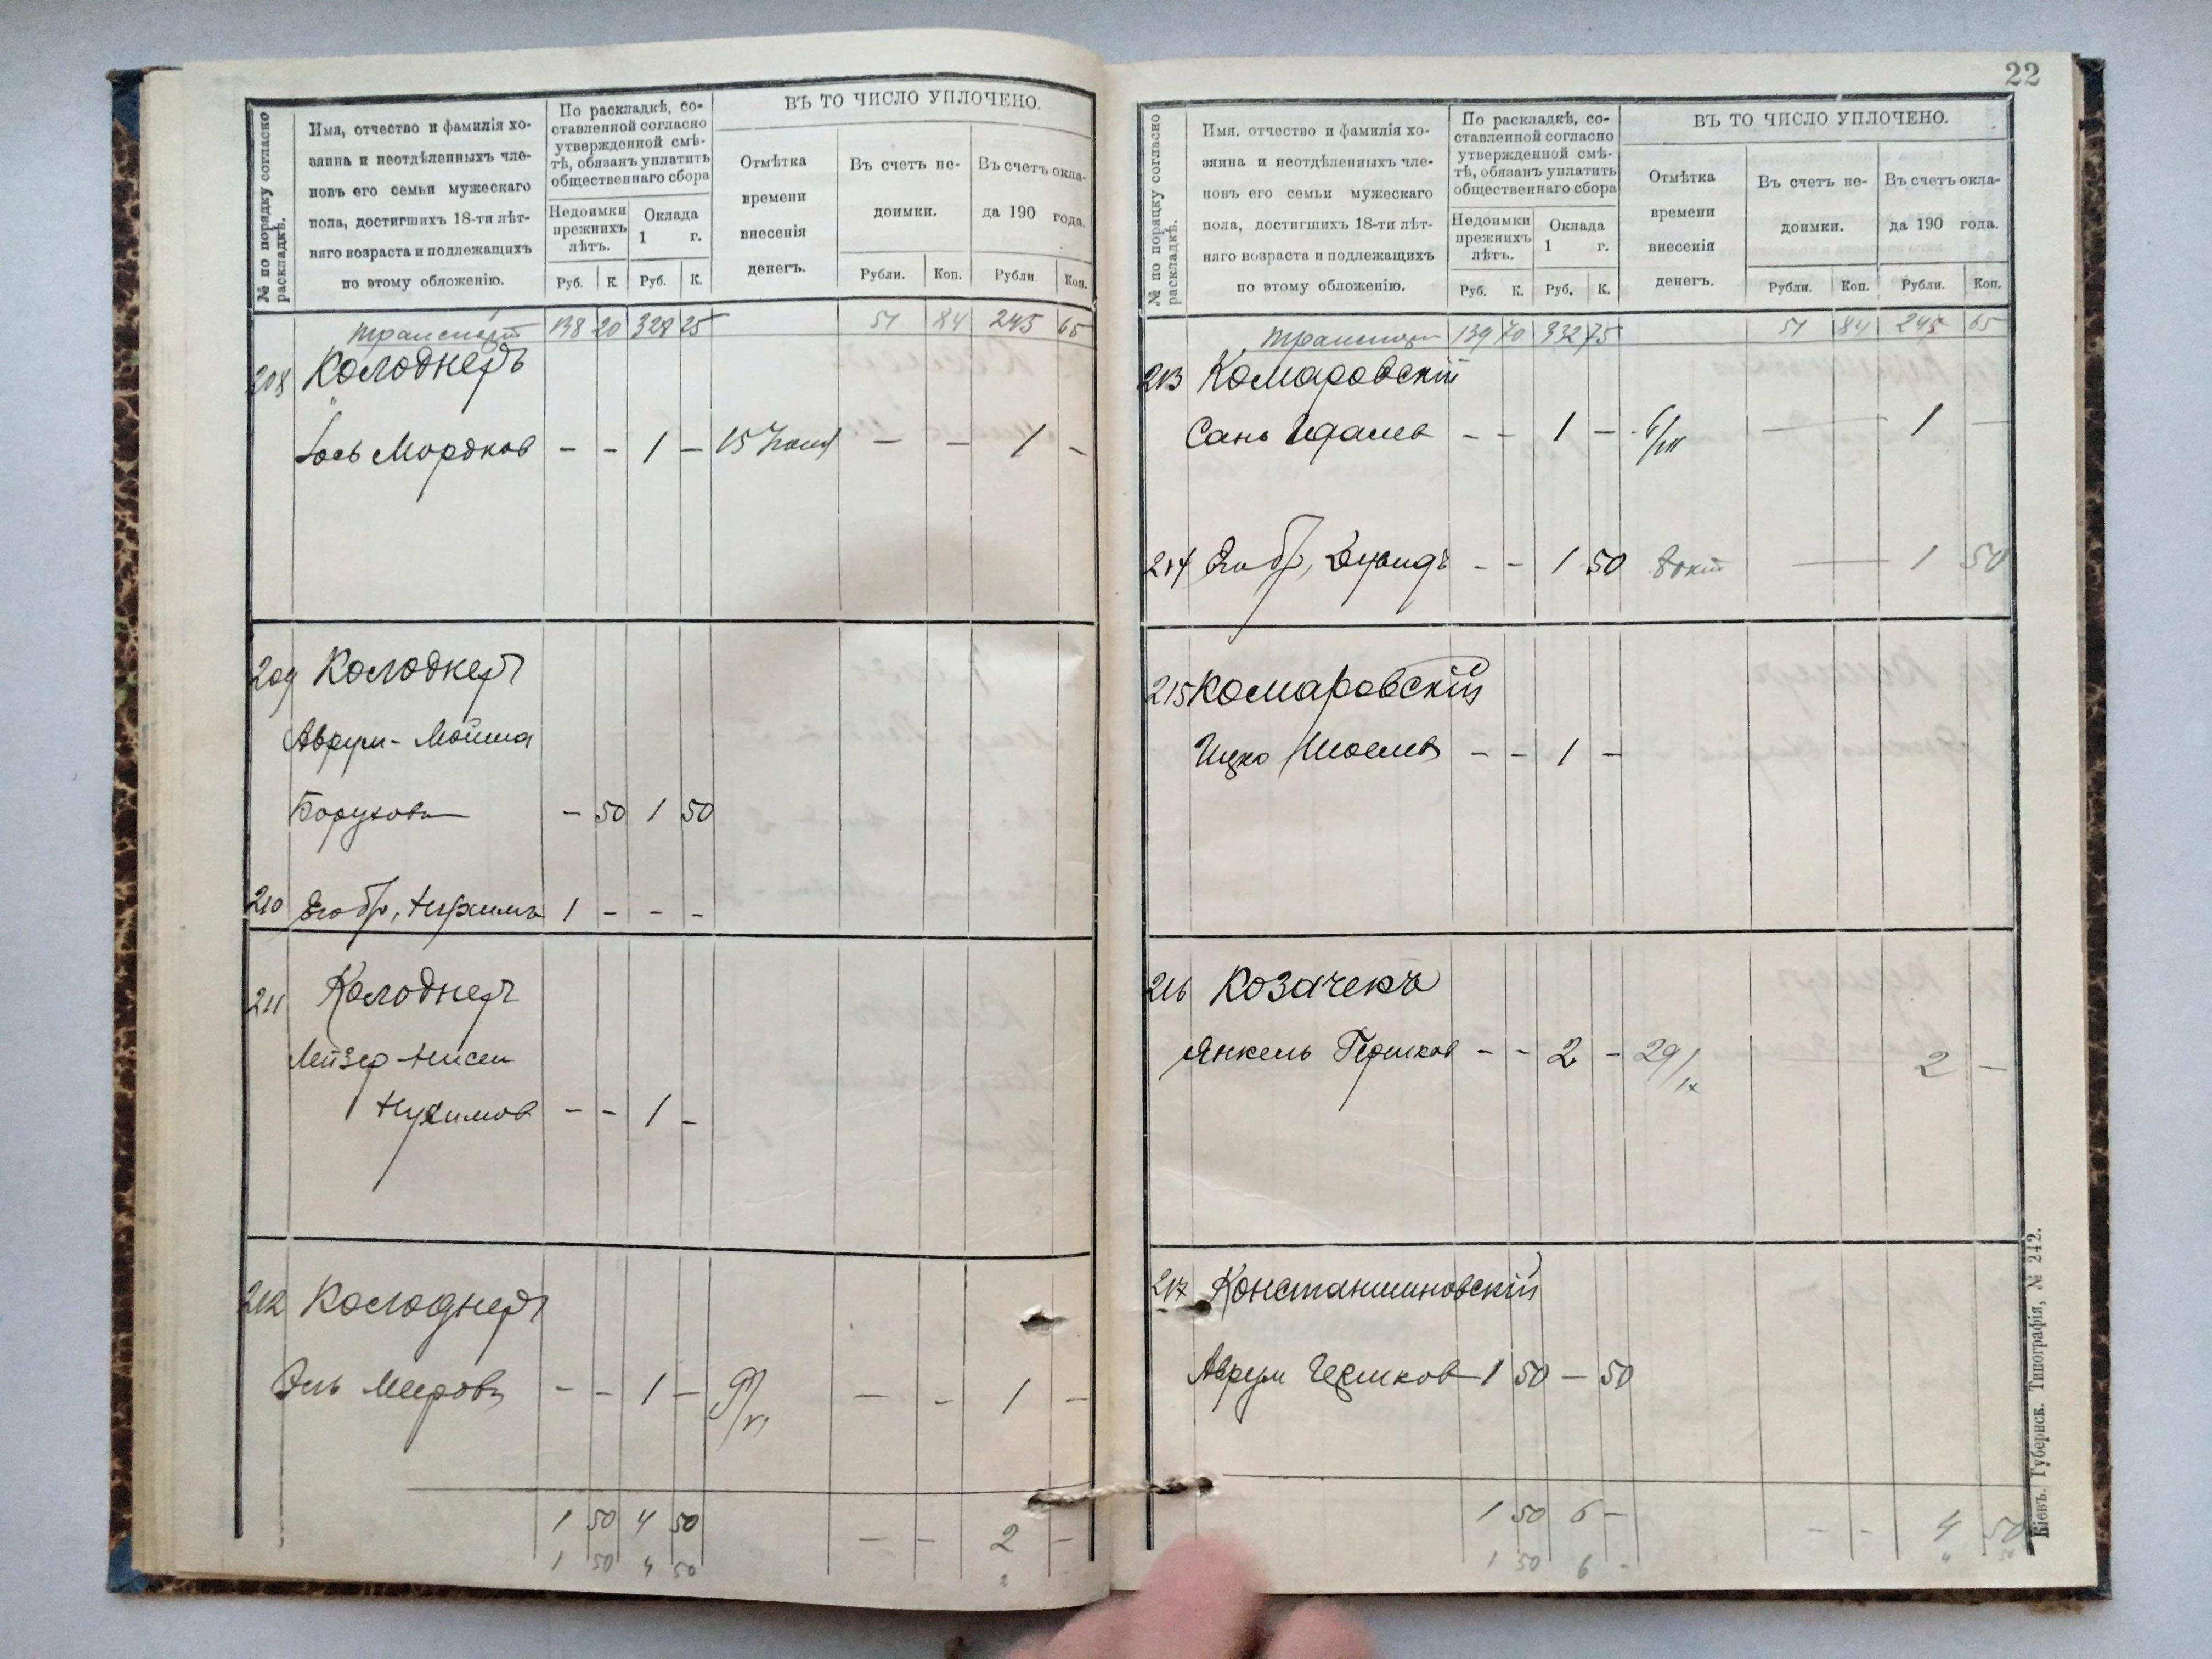 № по порядку согласно раскладкѣ.
Имя, отчество и фамилія хо-
зяина и неотдѣленныхъ чле-
новъ его семьи мужескаго
пола, достигшихъ 18-ти лѣт-
няго возраста и подлежащихъ
по этому обложенію.
По раскладкѣ, со-
ставленной согласно
утвержденной смѣ-
тѣ, обязанъ уплатить
общественнаго сбора
Недоимки прежнихъ лѣтъ.
Оклада 1 г.
Руб. К. Руб. К.
ВЪ ТО ЧИСЛО УПЛОЧЕНО.
Отмѣтка
времени
внесенія
денегъ.
Въ счетъ не-
доимки.
Въ счетъ окла-
да 190 года.
Рубли. Коп. Рубли Коп.
транспорт 138 20 328 25 51 84 245 65
208 Колоднеръ
Іось Мордков - - 1 - 15 - - 1 -
209 Колоднер
Аврум-Мойша
Борухов - 50 1 50
210 Его бр, Нухимъ 1 - - -
211 Колоднер
Лейзер-Нисен
Нухимов - - 1 -
212 Колоднер
Эль Мееровъ - - 1 - 9/VI - - 1 -
1 50 4 50 - - 2 -
1 50 4 50 2 -
22
№ по порядку согласно раскладкѣ.
Имя. отчество и фамилія хо-
зяина и неотдѣленныхъ чле-
новъ его семьи мужескаго
пола, достигшихъ 18-ти лѣт-
няго возраста и подлежащихъ
по этому обложенію.
По раскладкѣ, со-
ставленной согласно
утвержденной смѣ-
тѣ, обязанъ уплатить
общественнаго сбора
Недоимки прежнихъ лѣтъ.
Оклада 1 г.
Руб. К. Руб. К.
ВЪ ТО ЧИСЛО УПЛОЧЕНО.
Отмѣтка
времени
внесенія
денегъ.
Въ счетъ не-
доимки.
Въ счетъ окла-
да 190 года.
Рубли. Коп. Рубли. Коп.
транспорт 139 70 332 75 51 84 245 65
213 Комаровскій
- - 1 - — 1 —
214 Его бр, - - 1 50 8 окт — 1 50
215 Комаровскій
Ицко - - 1 -
216 Козачекъ
Янкель Гершков - - 2 - 29/IX 2 -
217 Константиновскій
Аврум 1 50 - 50
1 50 6 - - - 4 50
1 50 6 - 4 50
Кіевъ. Губернск. Типографія, № 242.